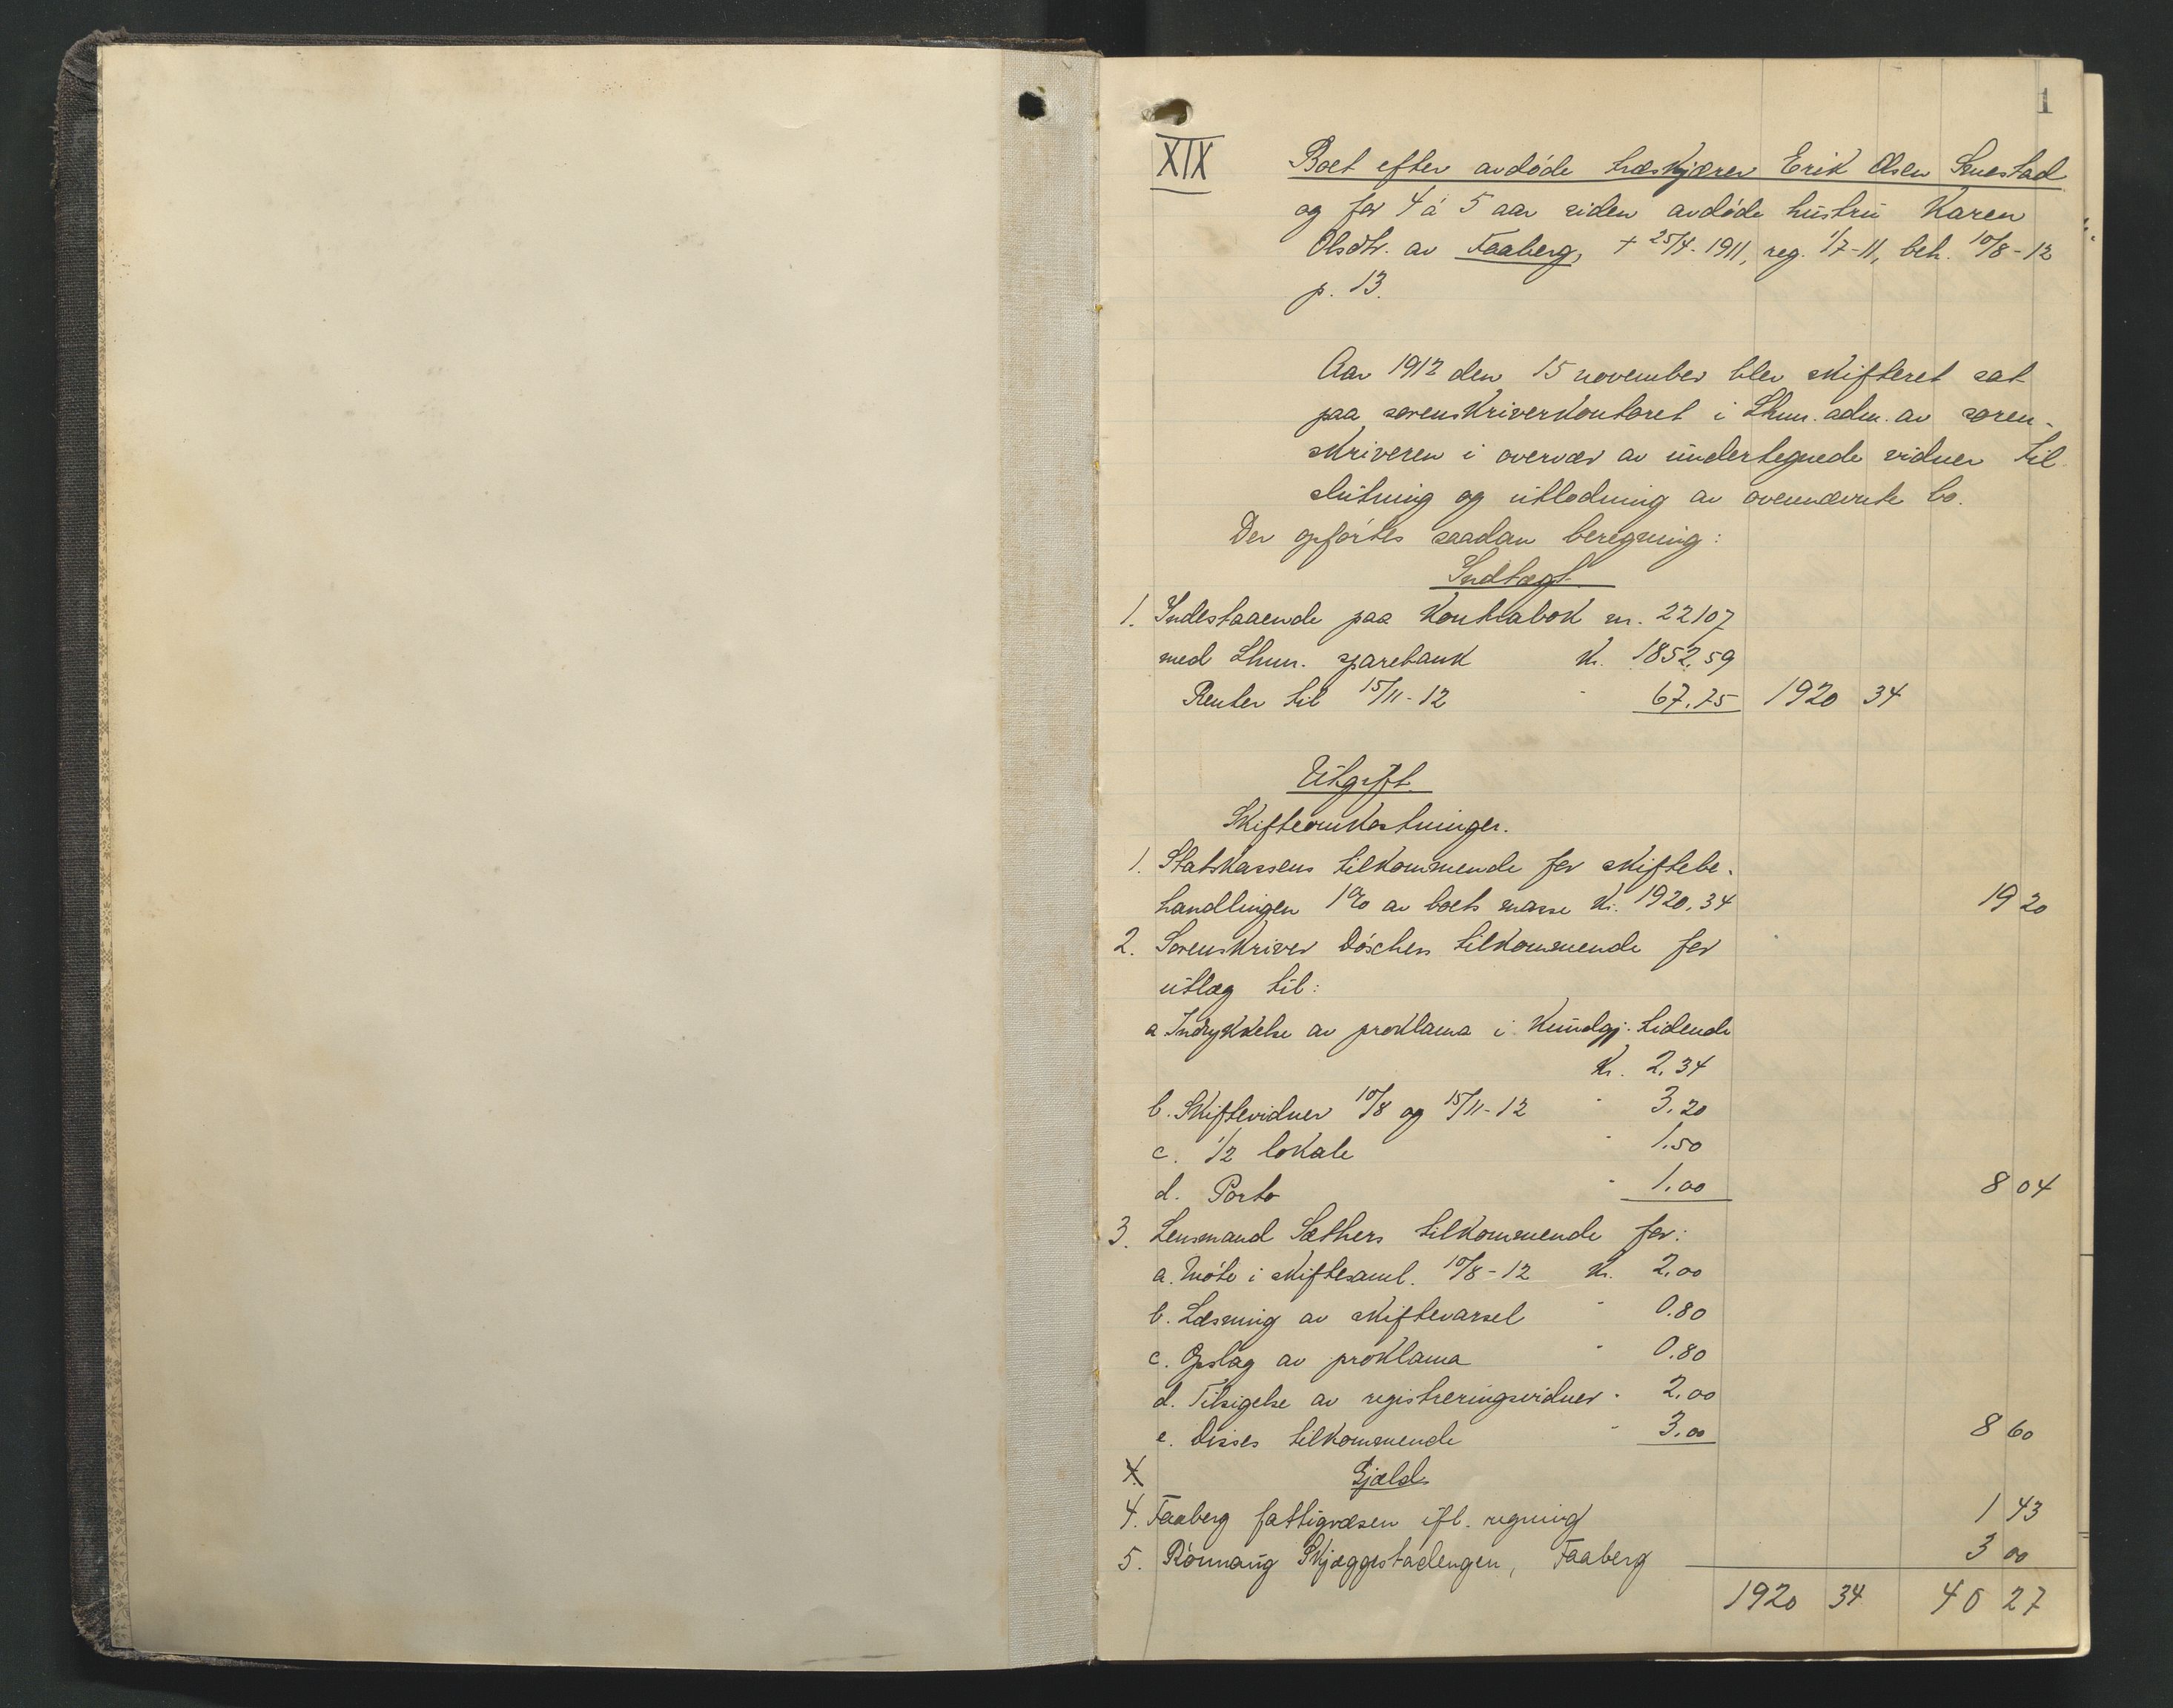 1
XIX
Boet efter avdøde træskjærer Erik Olsen Suestad
og for 4 à 5 aar siden avdøde hustru Karen
Olsdtr. av Faaberg, + 25/4-1911, reg. 1/7-11, beh. 10/8-12
p. 13.
Aar 1912 den 15 november blev skifteret sat
paa sorenskriverkontoret i Lhmr. adm. av soren-
skriveren i overvær av undertegnede vidner til
slutning og utlodning av ovennævnte bo.
Der opførtes saadan beregning:
Indtægt
1. Indestaaende paa Kontrabok nr. 22107
med Lhmr. sparebank Kr. 1852,59
Renter til 15/11-12 - 67.75 1920 34
Utgift
Skifteomkostninger.
1. Statskassens tilkommende for skiftebe-
handlingen 1% av boets masse Kr. 1920.34 19 20
2. Sorenskriver Döschers tilkommende for
utlæg til:
a Indrykkelse av proklama i Kundgj. tidende
Kr. 2.34
b. Skiftevidner 10/8 og 15/11-12 - 3.20
c. 1/2 lokale - 1.50
d. Porto - 1.00 8 04
3. Lensmand Sæthers tilkommende for:
a. Møte i skiftesaml. 10/8-12 Kr. 2.00
b. Læsning av skiftevarsel - 0.80
c. Opslag av proklama - 0.80
d. Tilsigelse av registreringsvidner - 2.00
e. Disses tilkommende - 3.00 8 60
4. Gjæld
4. Faaberg fattigvæsen ifl. regning 1 43
5. Rönnaug Skjæggestadengen, Faaberg 3 00
1920 34 40 27